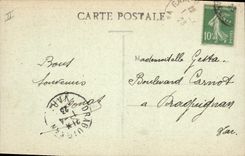 II
CARTE POSTALE
Bons
Souvenirs
Mademoiselle Gesta
Boulevard Carnot
à Draguignan
Var
10c
DRAGUIGNAN
VAR